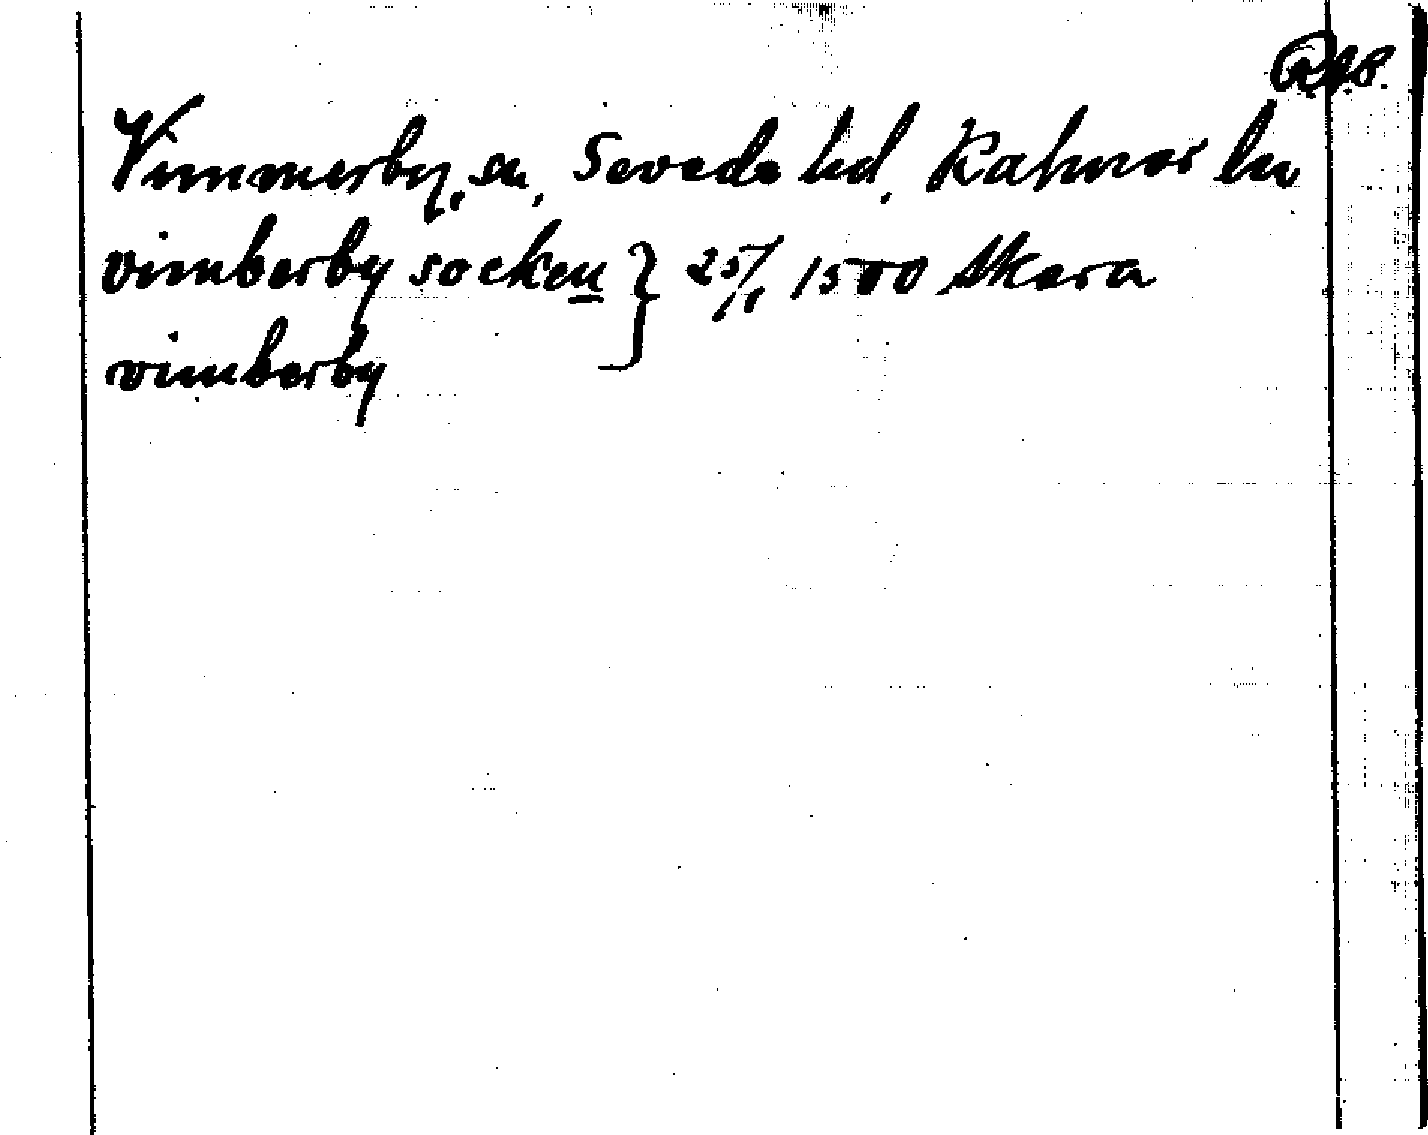 Vimmerby, sn, Sevede hd, Kalmar ln
vimberby socken } 25/1 1500 Skara
vimberby